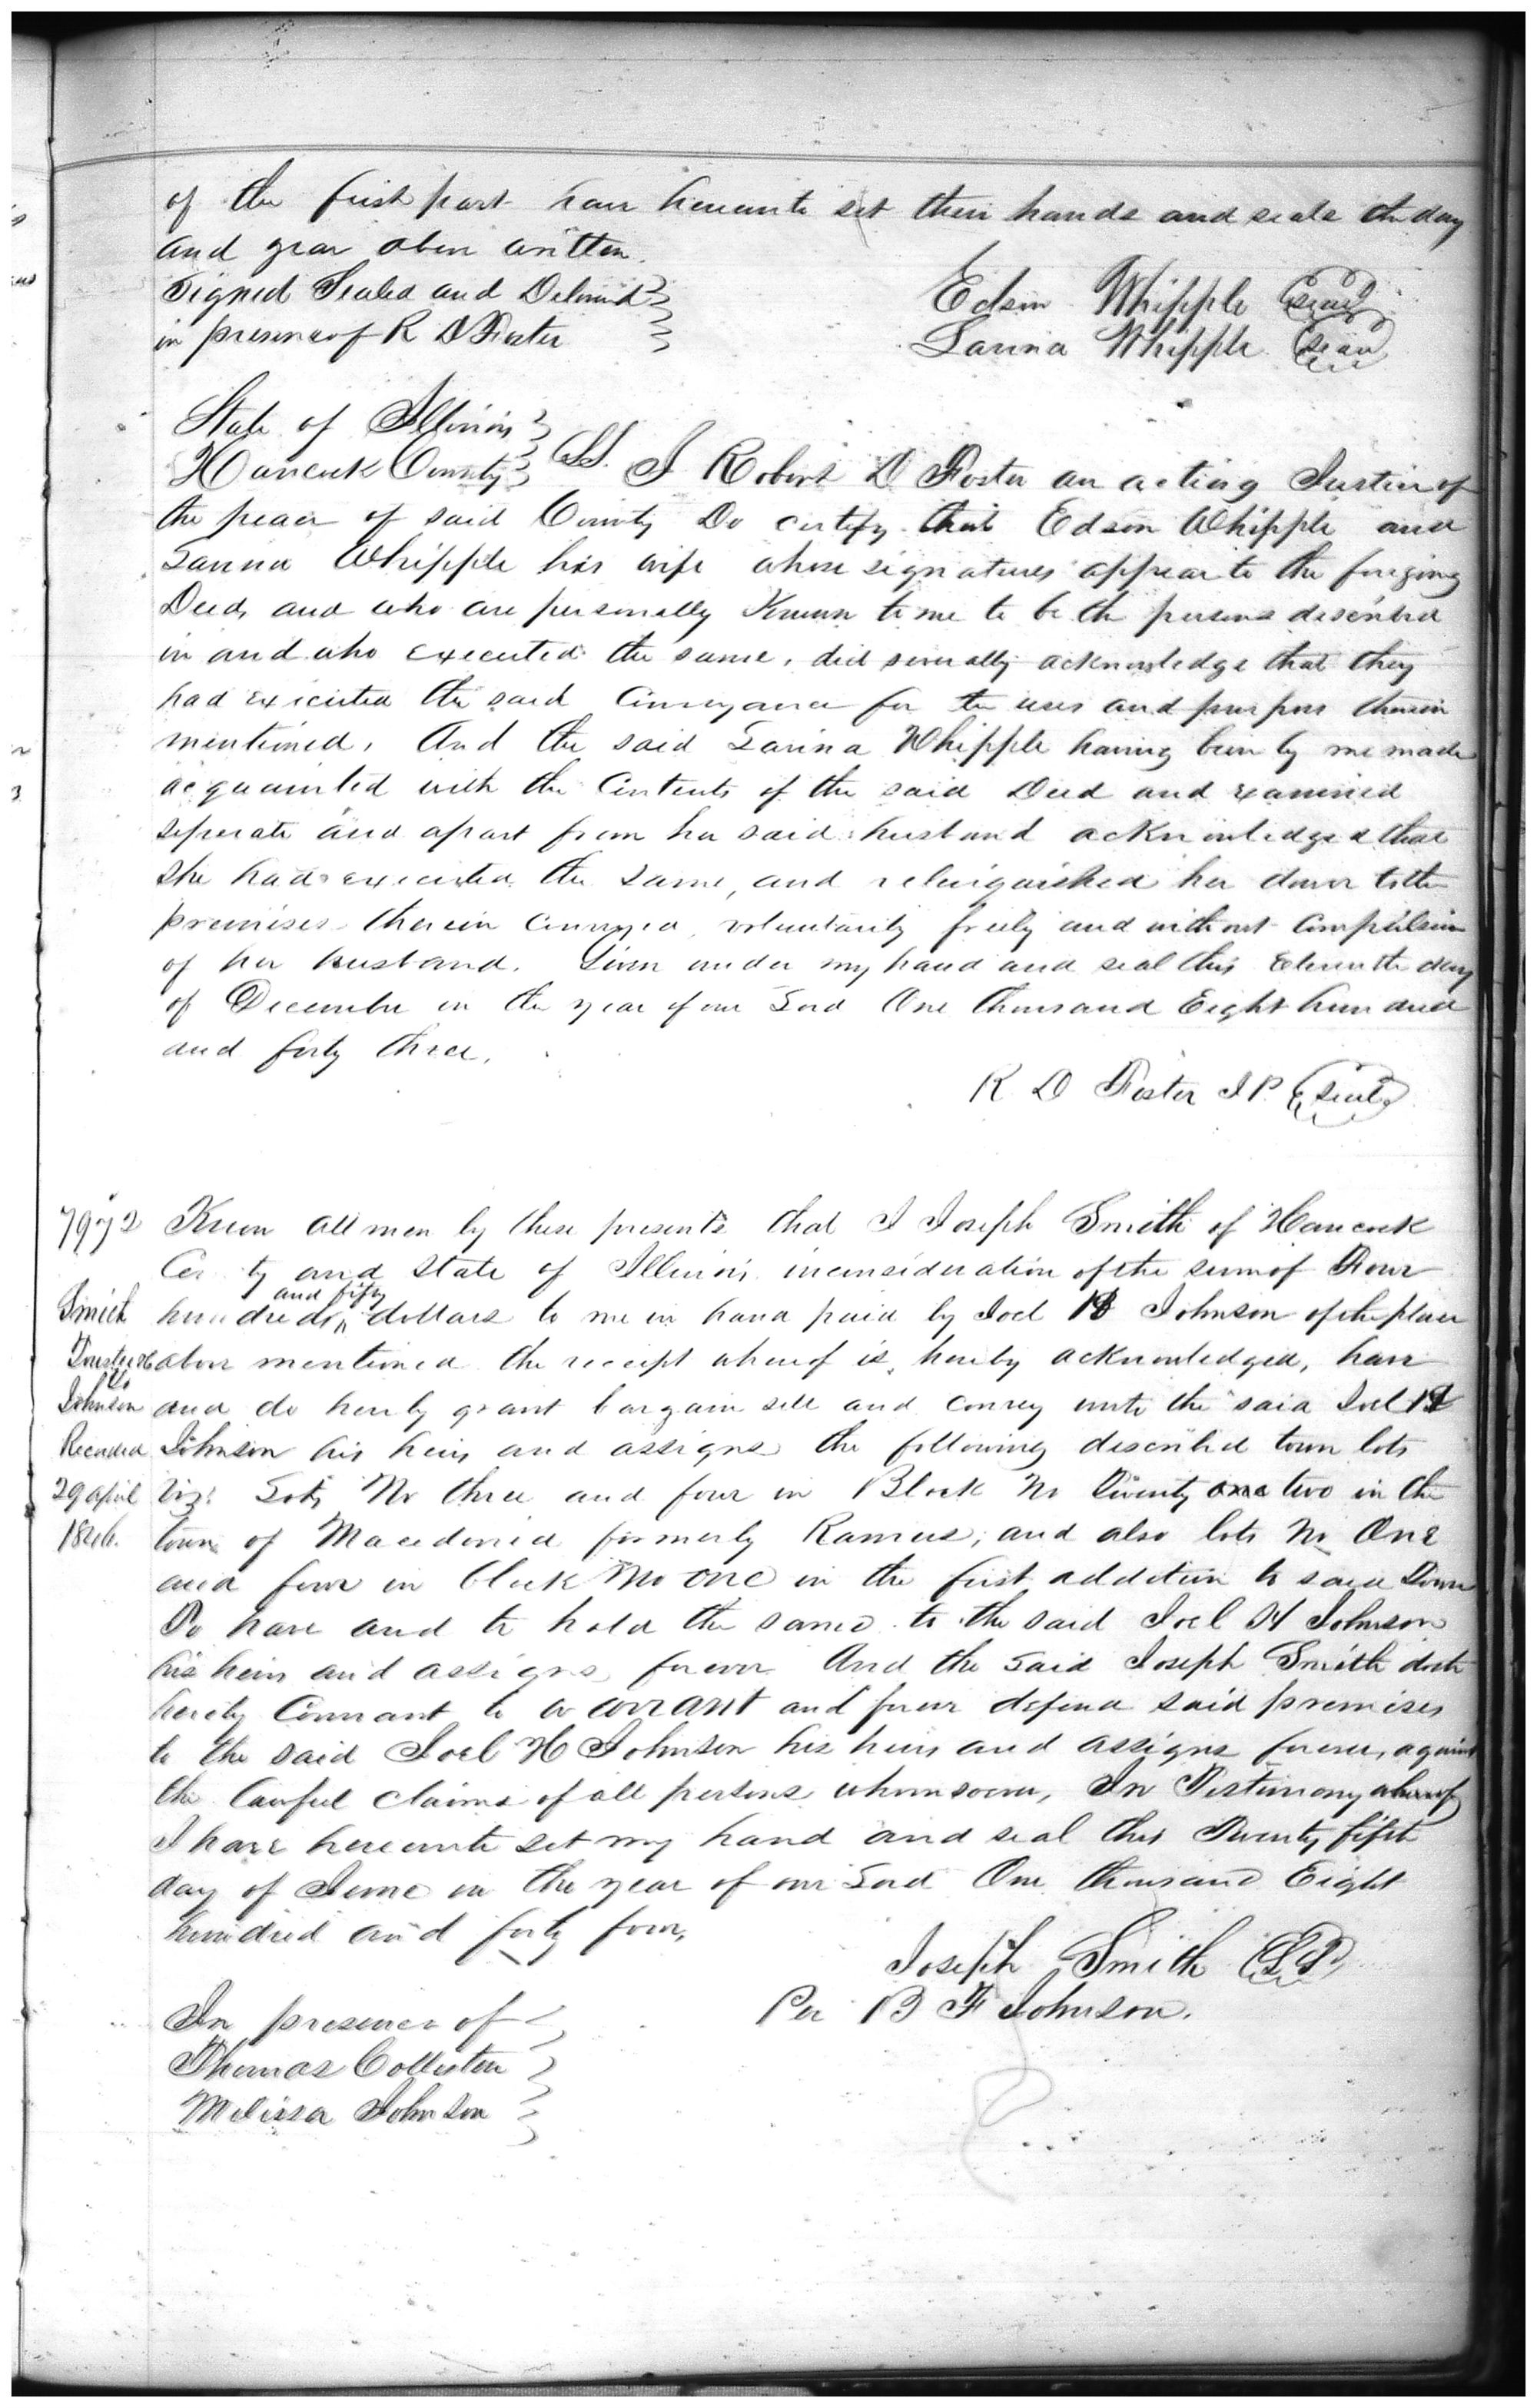 of the first part have hereunto set their hands and seals the day
and year above written.
Signed Sealed and Delivered
in presence of R D Foster
Edson Whipple (seal)
Lavina Whipple (seal)
State of Illinois
Hancock County SS. I Robert D Foster an acting Justice of
the peace of said County Do certify that Edson Whipple and
Lavina Whipple his wife whose signatures appear to the foregoing
Deed, and who are personally Known to me to be the persons described
in and who executed the same, did severally acknowledge that they
had executed the said Conveyance for the uses and purposes therein
mentioned. And the said Lavina Whipple having been by me made
acquainted with the Contents of the said Deed and examined
seperate and apart from her said husband acknowledged that
she had executed the same, and relinquished her dower to the
premises therein Conveyed, voluntarily freely and without Compulsion
of her husband. Given under my hand and seal this Eleventh day
of December in the year of our Lord One thousand Eight hundred
and forty three.
R D Foster J P. (seal)
7972
Smith
Trustee &c
to
Johnson
Recorded
29 april
1846.
Know all men by these presents that I Joseph Smith of Hancock
County and State of Illinois in consideration of the sum of Four
and fifty
hundred dollars to me in hand paid by Joel H Johnson of the place
above mentioned the receipt whereof is hereby acknowledged, have
and do hereby grant bargain sell and convey unto the said Joel H
Johnson his heirs and assigns the following described town lots
Viz: Lots No three and four in Block No Twenty one two in the
town of Macedonia formerly Ramus, and also lots No One
and four in block No one in the first addition to said Town
To have and to hold the same to the said Joel H Johnson
his heirs and assigns forever And the said Joseph Smith doth
hereby Covenant to warrant and forever defend said premises
to the said Joel H Johnson his heirs and assigns forever, against
the lawful claims of all persons whomsoever, In Testimony whereof
I have hereunto set my hand and seal this Twenty fifth
day of June in the year of our Lord One thousand Eight
hundred and forty four,
Joseph Smith (LS)
Per B F Johnson.
In presence of
Thomas
Melissa Johnson